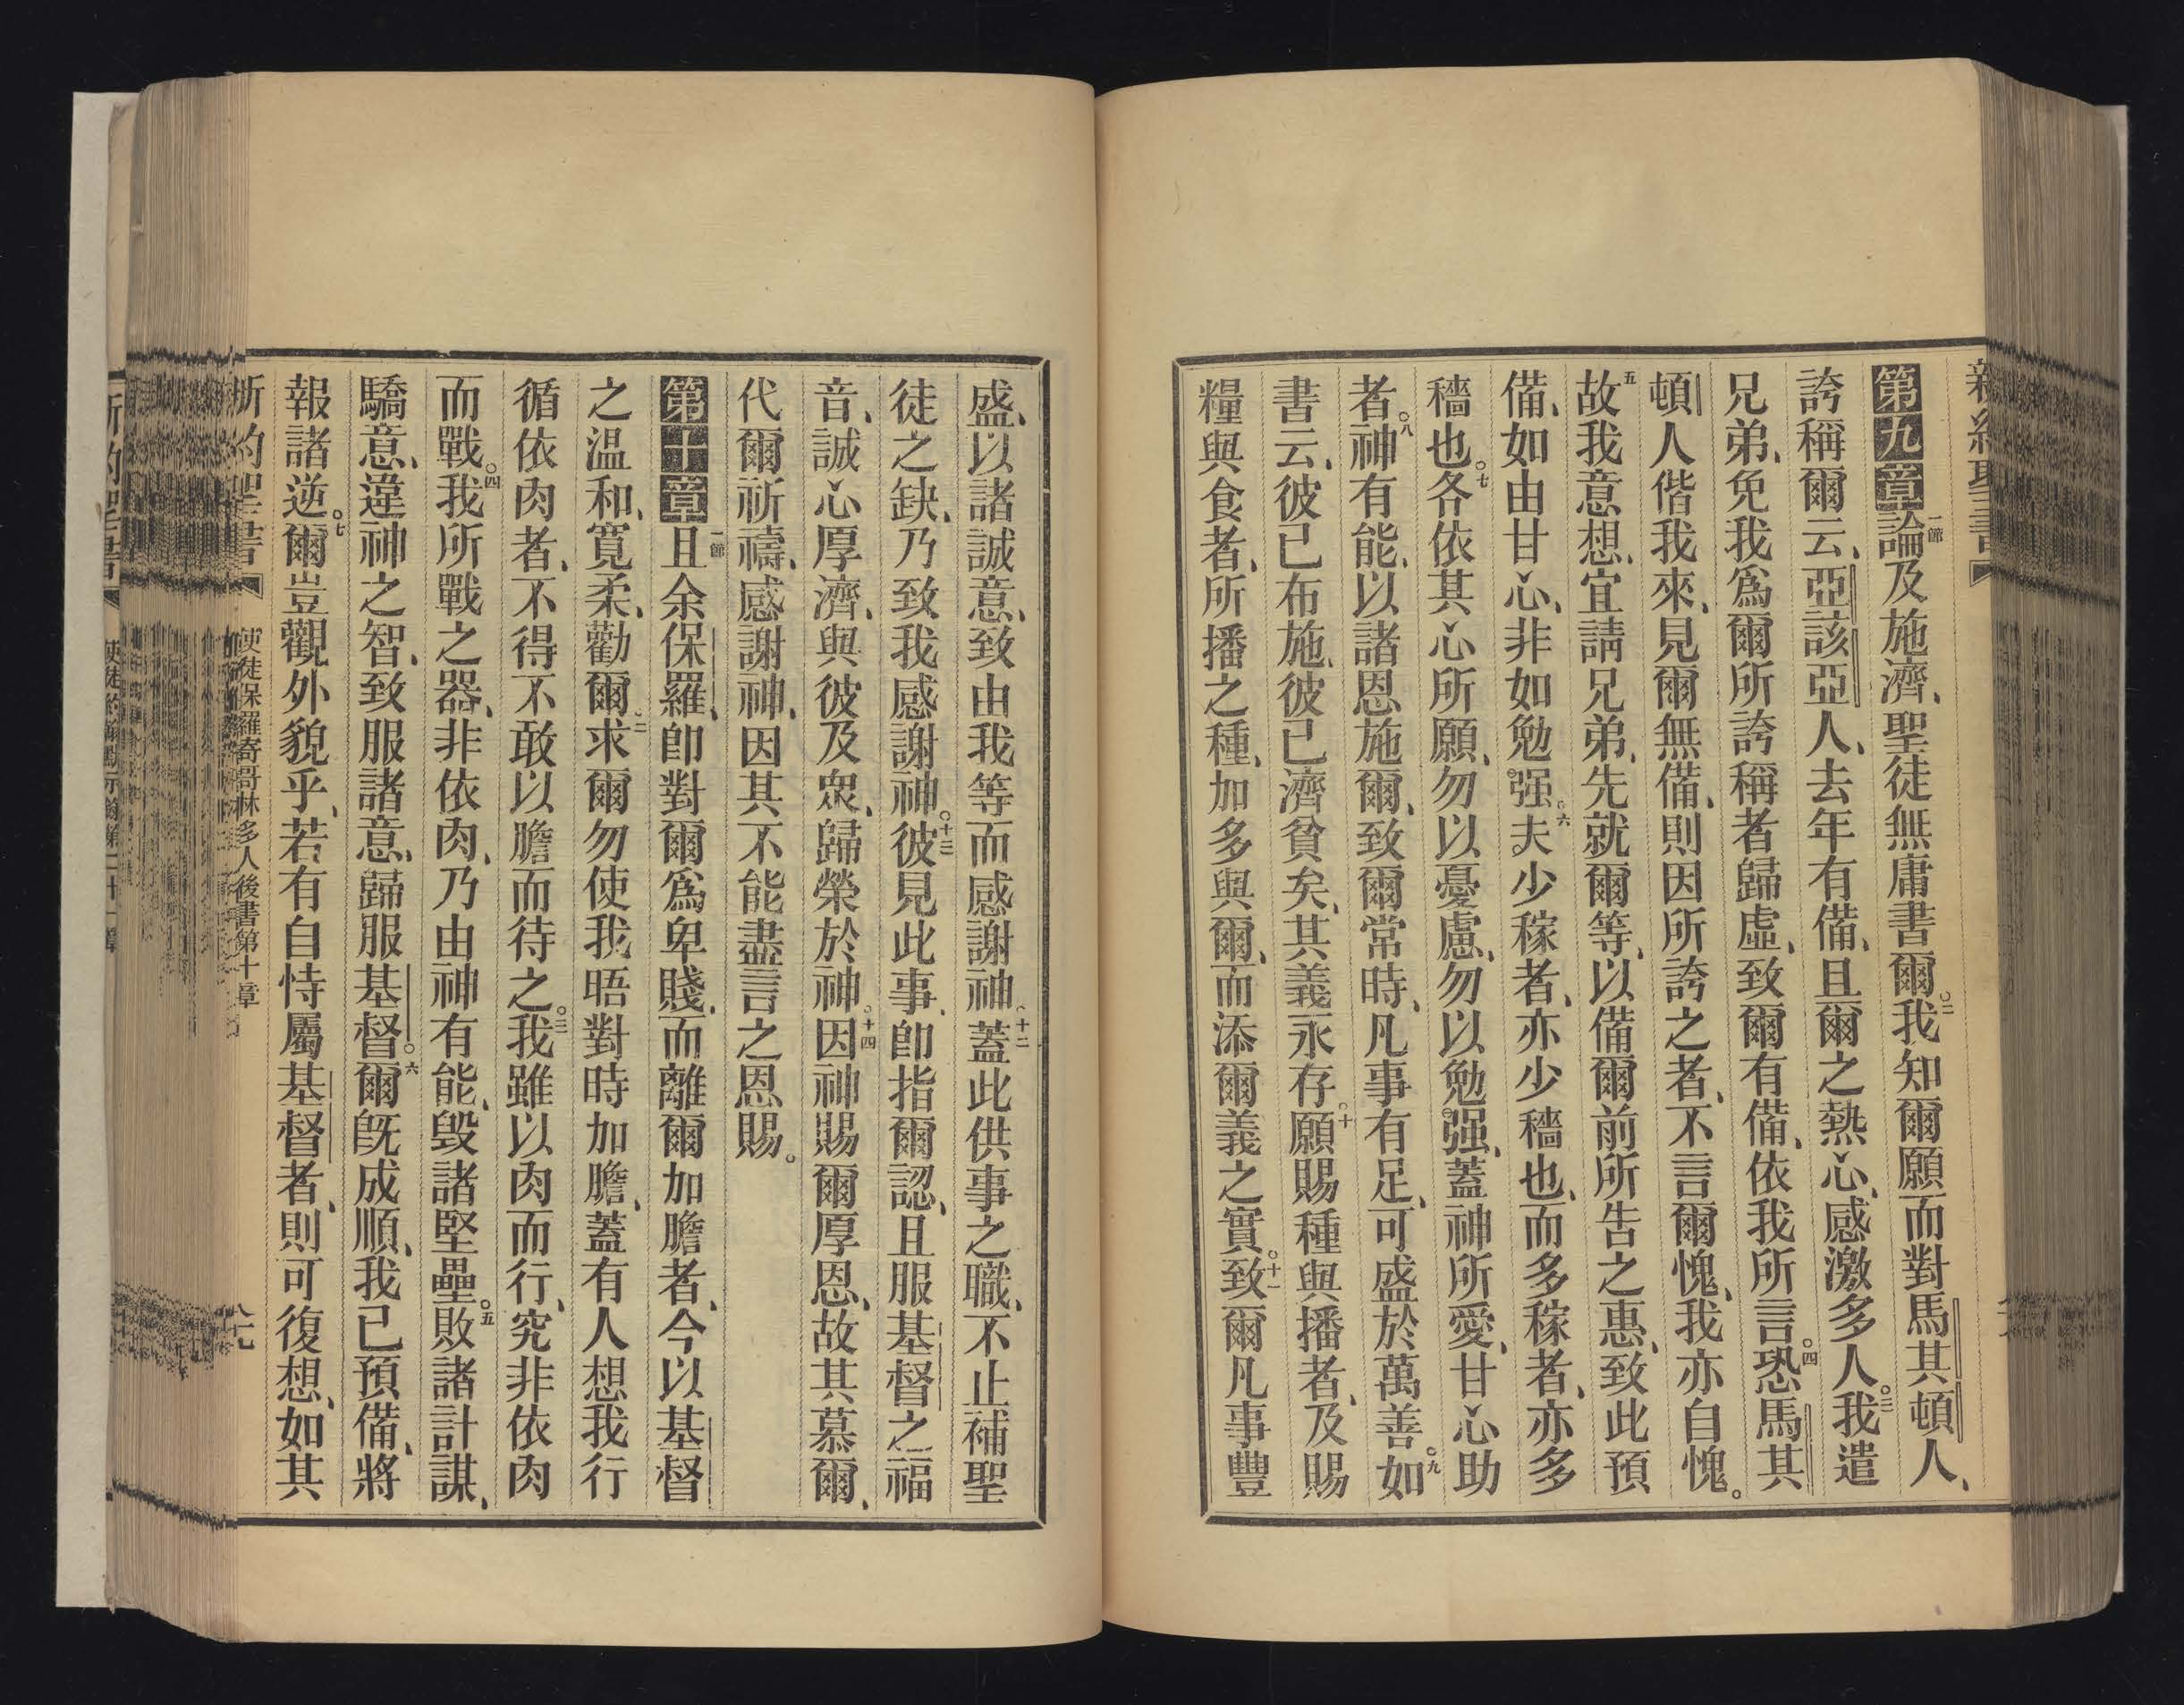 第九章一節論及施濟、聖徒無庸書爾。二我知爾願而對馬其頓人、
誇稱爾云、亞該亞人、去年有備、且爾之熱心、感激多人。三我遣
兄弟、免我爲爾所誇稱者歸虛、致爾有備、依我所言。四恐馬其
頓人偕我來、見爾無備、則因所誇之者、不言爾愧、我亦自愧。
五故我意想、宜請兄弟、先就爾等、以備爾前所告之惠、致此預
備、如由甘心、非如勉强。六夫少稼者、亦少穡也、而多稼者、亦多
穡也。七各依其心所願、勿以憂慮、勿以勉强、蓋神所愛、甘心助
者。八神有能、以諸恩施爾、致爾常時、凡事有足、可盛於萬善。九如
書云、彼已布施、彼已濟貧矣、其義永存。十願賜種與播者、及賜
糧與食者、所播之種、加多與爾、而添爾義之實。十一致爾凡事豐
盛、以諸誠意、致由我等而感謝神。十二蓋此供事之職、不止補聖
徒之缺、乃致我感謝神。十三彼見此事、卽指爾認、且服基督之福
音、誠心厚濟、與彼及衆、歸榮於神。十四因神賜爾厚恩、故其慕爾、
代爾祈禱、感謝神、因其不能盡言之恩賜。
第十章一節且余保羅、卽對爾爲卑賤、而離爾加膽者、今以基督
之温和、寛柔、勸爾。二求爾勿使我晤對時加膽、蓋有人想我行
循依肉者、不得不敢以膽而待之。三我雖以肉而行、究非依肉
而戰。四我所戰之器、非依肉、乃由神有能、毀諸堅壘。五敗諸計謀、
驕意、違神之智、致服諸意、歸服基督。六爾旣成順、我已預備、將
報諸逆。七爾豈觀外貌乎、若有自恃屬基督者、則可復想、如其
使徒保羅寄哥林多人後書第十章
八十九